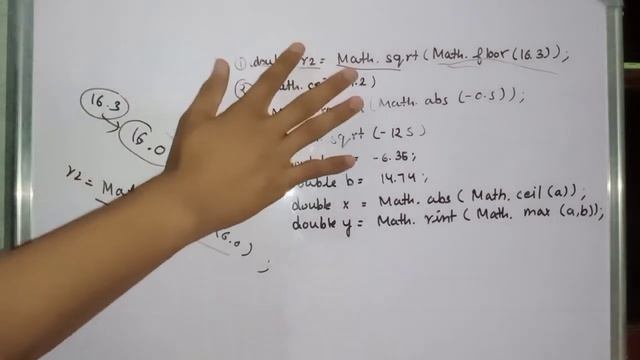 ① double r2 = Math.sqrt(Math.floor(16.3));
Math.abs(-0.5));
sqrt(-125)
= -6.35;
double b = 14.74;
double x = Math.abs(Math.ceil(a));
double y = Math.rint(Math.max(a,b));
16.3
16.0
r2 = Mat
16.0)
;